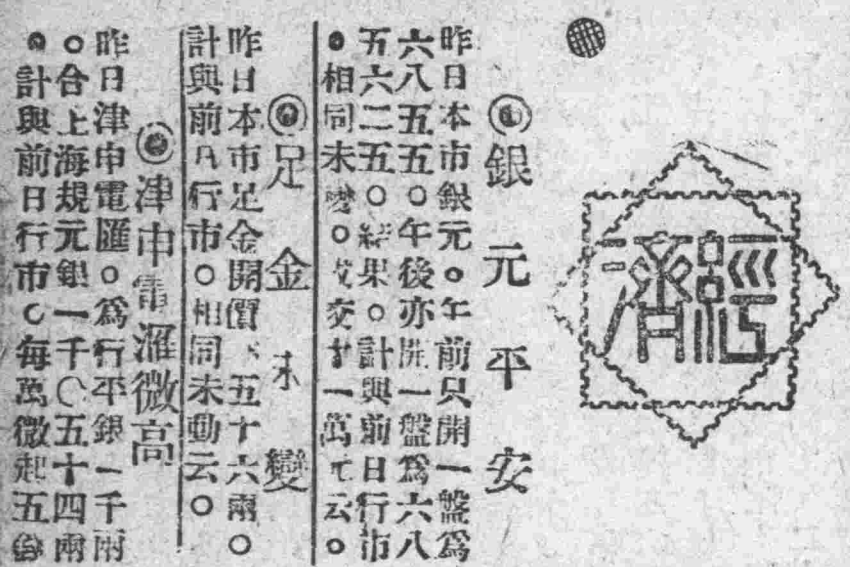 經濟
◉銀元平安
昨日本市銀元。午前只開一盤爲
六八五五。午後亦開一盤爲六八
五六二五。結果。計與前日行市
相同未變。成交 一萬元云。
◉足金未變
昨日本市足金開價 五十六兩。
計與前日行市。相同未動云。
◉津申電滙微高
昨日津申電匯。爲行平銀一千兩
。合上海規元銀一千〇五十四兩
。計與前日行市。每萬微起五